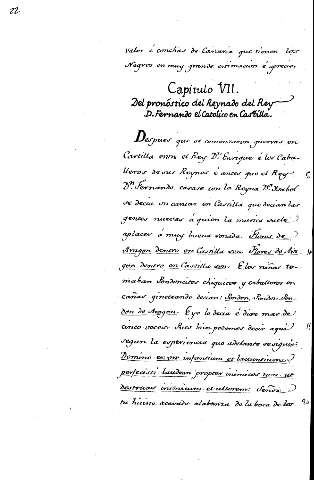 22
valor é conchas de Canaria que tienen los
Negros en muy grande estimacion é aprecio.
Capitulo VII.
Del pronóstico del Reynado del Rey
D. Fernando el Catolico en Castilla.
Despues que se comenzaron guerras en
Castilla entre el Rey Dn. Enrique é los Caba-
lleros de sus Reynos é antes que el Rey
Dn. Fernando casase con la Reyna Da. Isabel
se decia un cantar en Castilla que decian las
gentes nuevas á quien la musica suele
aplacer á muy buena sonada. Flores de
Aragon dentro en Castilla son Flores de Ara-
gon dentro en Castilla son. E los niños to-
maban Pendoncitos chiquitos y caballeros en
cañas gineteando decian: Pendon, Pendon Pen-
don de Aragon. E yo lo decia é dixe mas de
cinco veces. Pues bien podemos decir aqui
segun la esperiencia que adelante se siguio:
Domine ex ore infantium et lactentium
perfecisti laudem propter inimicos tuos ut
destruas inimicum et ultorem: Señor
tu hiciste acavada alabanza de la boca de los